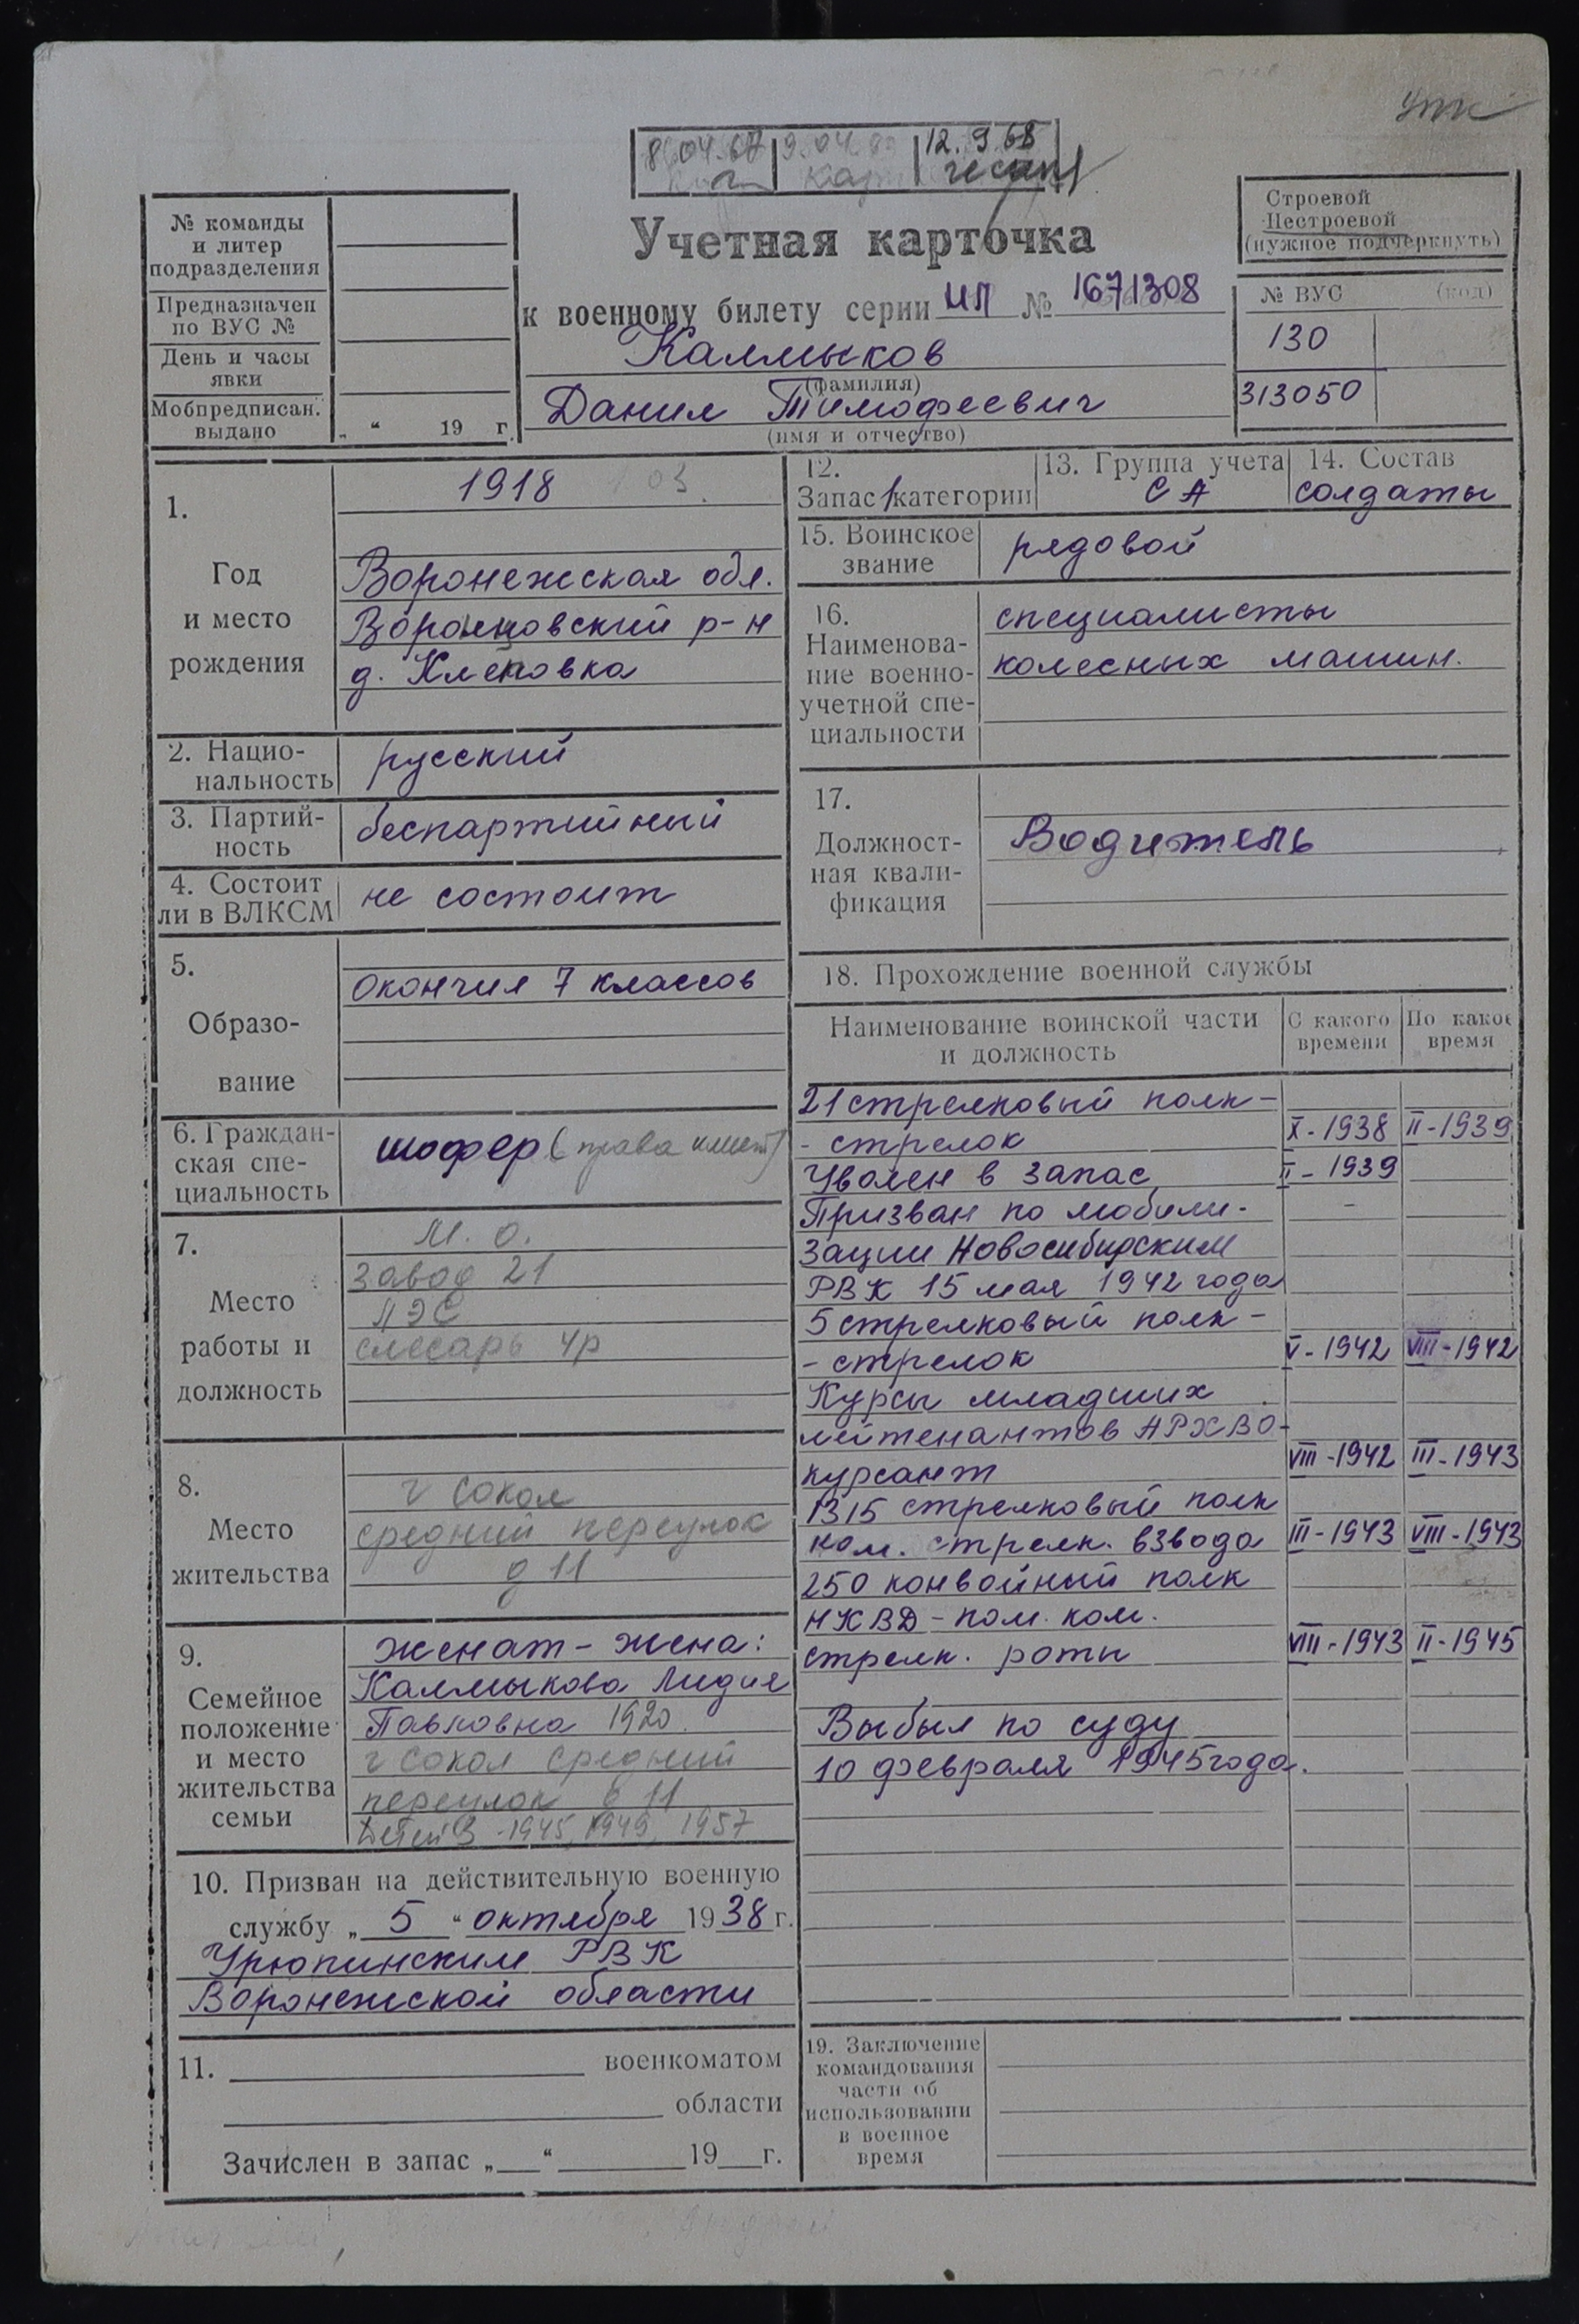 упк
8.04.67 9.04. 12.9.68
Строевой
Нестроевой
(нужное подчеркнуть)
№ команды
и литер
подразделения
Предназначен
по ВУС №
День и часы
явки
Мобпредписан.
выдано
„ “ 19 г.
Учетная карточка
к военному билету серии ИП № 1671308
Калмыков
(фамилия)
Данил Тимофеевич
(имя и отчество)
№ ВУС (код)
130
313050
1.
Год
и место
рождения
1918 03.
Воронежская обл.
Воронцовский р-н
д. Кленовка
2. Нацио-
нальность
русский
3. Партий-
ность
беспартийный
4. Состоит
ли в ВЛКСМ
не состоит
5.
Образо-
вание
окончил 7 классов
6. Граждан-
ская спе-
циальность
шофер (права имеет)
7.
Место
работы и
должность
М. О.
завод 21
ПЭС
слесарь 4р
8.
Место
жительства
г Сокол
средний переулок
д 11
9.
Семейное
положение
и место
жительства
семьи
женат - жена:
Калмыкова Лидия
Павловна 1920
г Сокол средний
переулок д 11
Детей 3 - 1945, 1949, 1957
10. Призван на действительную военную
службу „ 5 “ октября 1938 г.
Урюпинским РВК
Воронежской области
11. военкоматом
области
Зачислен в запас „ “ 19 г.
12.
Запас 1 категории
13. Группа учета
СА
14. Состав
солдаты
15. Воинское
звание
рядовой
16.
Наименова-
ние военно-
учетной спе-
циальности
специалисты
колесных машин.
17.
Должност-
ная квали-
фикация
Водитель
18. Прохождение военной службы
Наименование воинской части
и должность
С какого
времени
По какое
время
21 стрелковый полк -
- стрелок X - 1938 II - 1939
Уволен в запас II - 1939
Призван по мобили- -
зации Новосибирским
РВК 15 мая 1942 года
5 стрелковый полк -
- стрелок V - 1942 VIII - 1942
Курсы младших
лейтенантов АРХВО -
курсант VIII - 1942 III - 1943
1315 стрелковый полк
ком. стрелк. взвода III - 1943 VIII - 1943
250 конвойный полк
НКВД - пом. ком.
стрелк. роты VIII - 1943 II - 1945
Выбыл по суду
10 февраля 1945 года.
19. Заключение
командования
части об
использовании
в военное
время